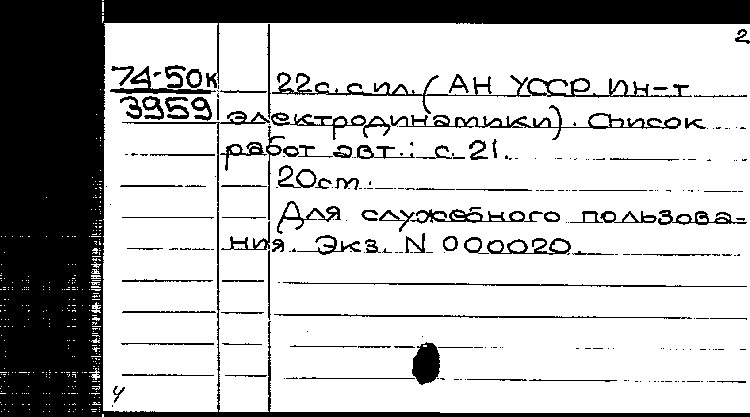 2
74-50к
3959
22с. с ил. (АН УССР. Ин-т
электродинамики). Список
работ авт.: с. 21.
20ст.
Для служебного пользова=
ния. Экз. N 000020.
4